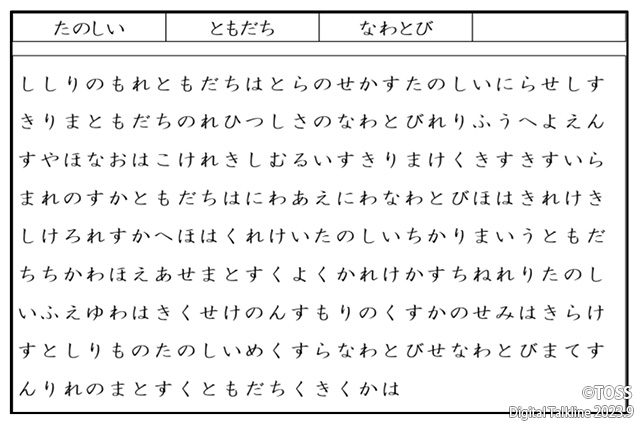 たのしい ともだち なわとび
ししりのもれともだちはとらのせかすたのしいにらせしす
きりまともだちのれひつしさのなわとびれりふうへよえん
すやほなおはこけれきしむるいすきりまけくきすきすいら
まれのすかともだちはにわあえにわなわとびほはきれけき
しけろれすかへほはくれけいたのしいちかりまいうともだ
ちちかわほえあせまとすくよくかれけかすちねれりたのし
いふえゆわはきくせけのんすもりのくすかのせみはきらけ
すとしりものたのしいめくすらなわとびせなわとびまてす
んりれのまとすくともだちくきくかは
©TOSS
Digital Talkline 2023.9